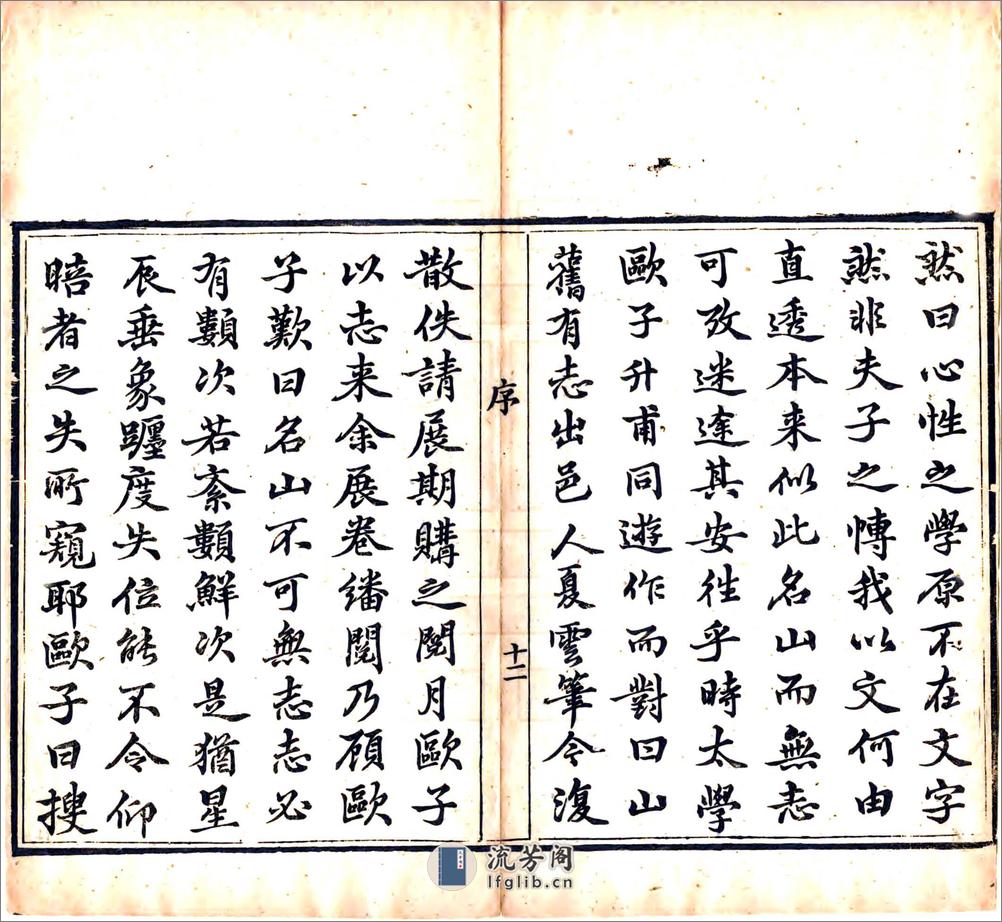 然曰心性之學原不在文字
然非夫子之慱我以文何由
直透本来似此名山而無志
可攷迷途其安往乎時太學
歐子升甫同遊作而對曰山
舊有志出邑人夏雲筆今復
序
十二
散佚請展期購之閱月歐子
以志来余展卷繙閱乃顧歐
子歎曰名山不可無志志必
有類次若紊類鮮次是猶星
辰垂象躔度失位能不令仰
瞎者之失所窺耶歐子曰搜
流芳阁
lfglib.cn